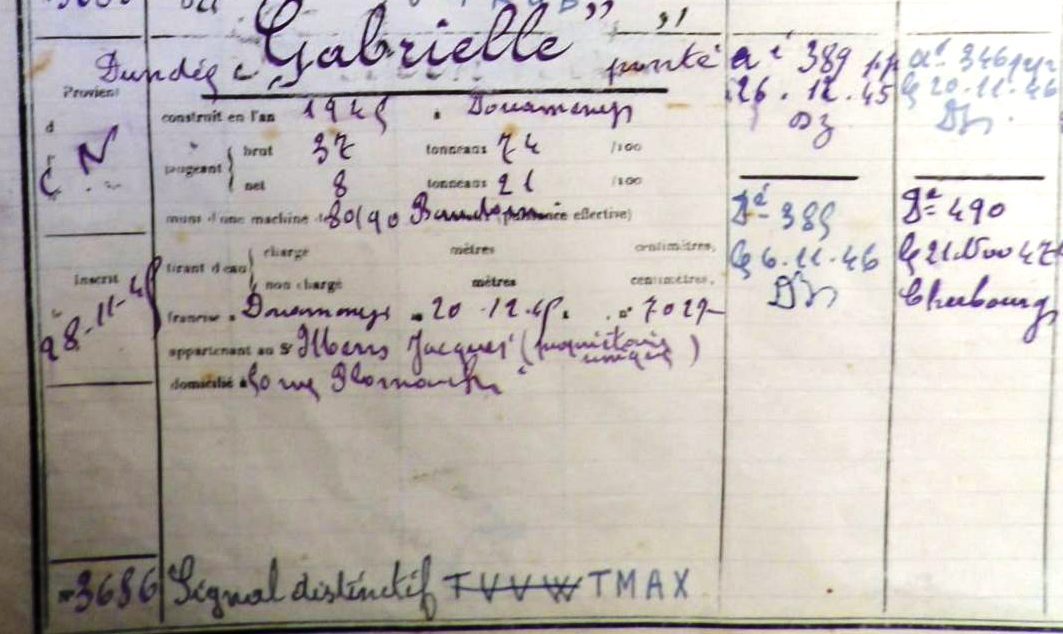 Gabrielle" "
Dundée à ponté
Provient
construit en l'an 1945 à Douarnenez
jaugeant brut 37 tonneaux 74 /100
net 8 tonneaux 21 /100
muni d'une machine de 80/90 Baudouin (puissance effective)
tirant d'eau charge mètres centimètres,
non chargé mètres centimètres,
francisé à Douarnenez 20.12.45. n° 7027
appartenant au Sr Jacques (propriétaire
unique)
domicilié à 50 rue
Inscrit
le
28-11-45
N
dé 389
26.12.45
dé 346
le 20-11-46
Dé 389
le 6.11.46
Dé 490
le 21 Nov 47
Cherbourg
n°3686 Signal distinctif TVVW TMAX